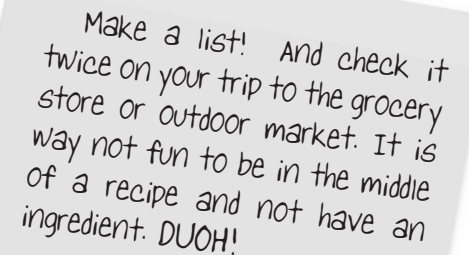 Make a list! And check it
twice on your trip to the grocery
store or outdoor market. It is
way not fun to be in the middle
of a recipe and not have an
ingredient. DUOH!